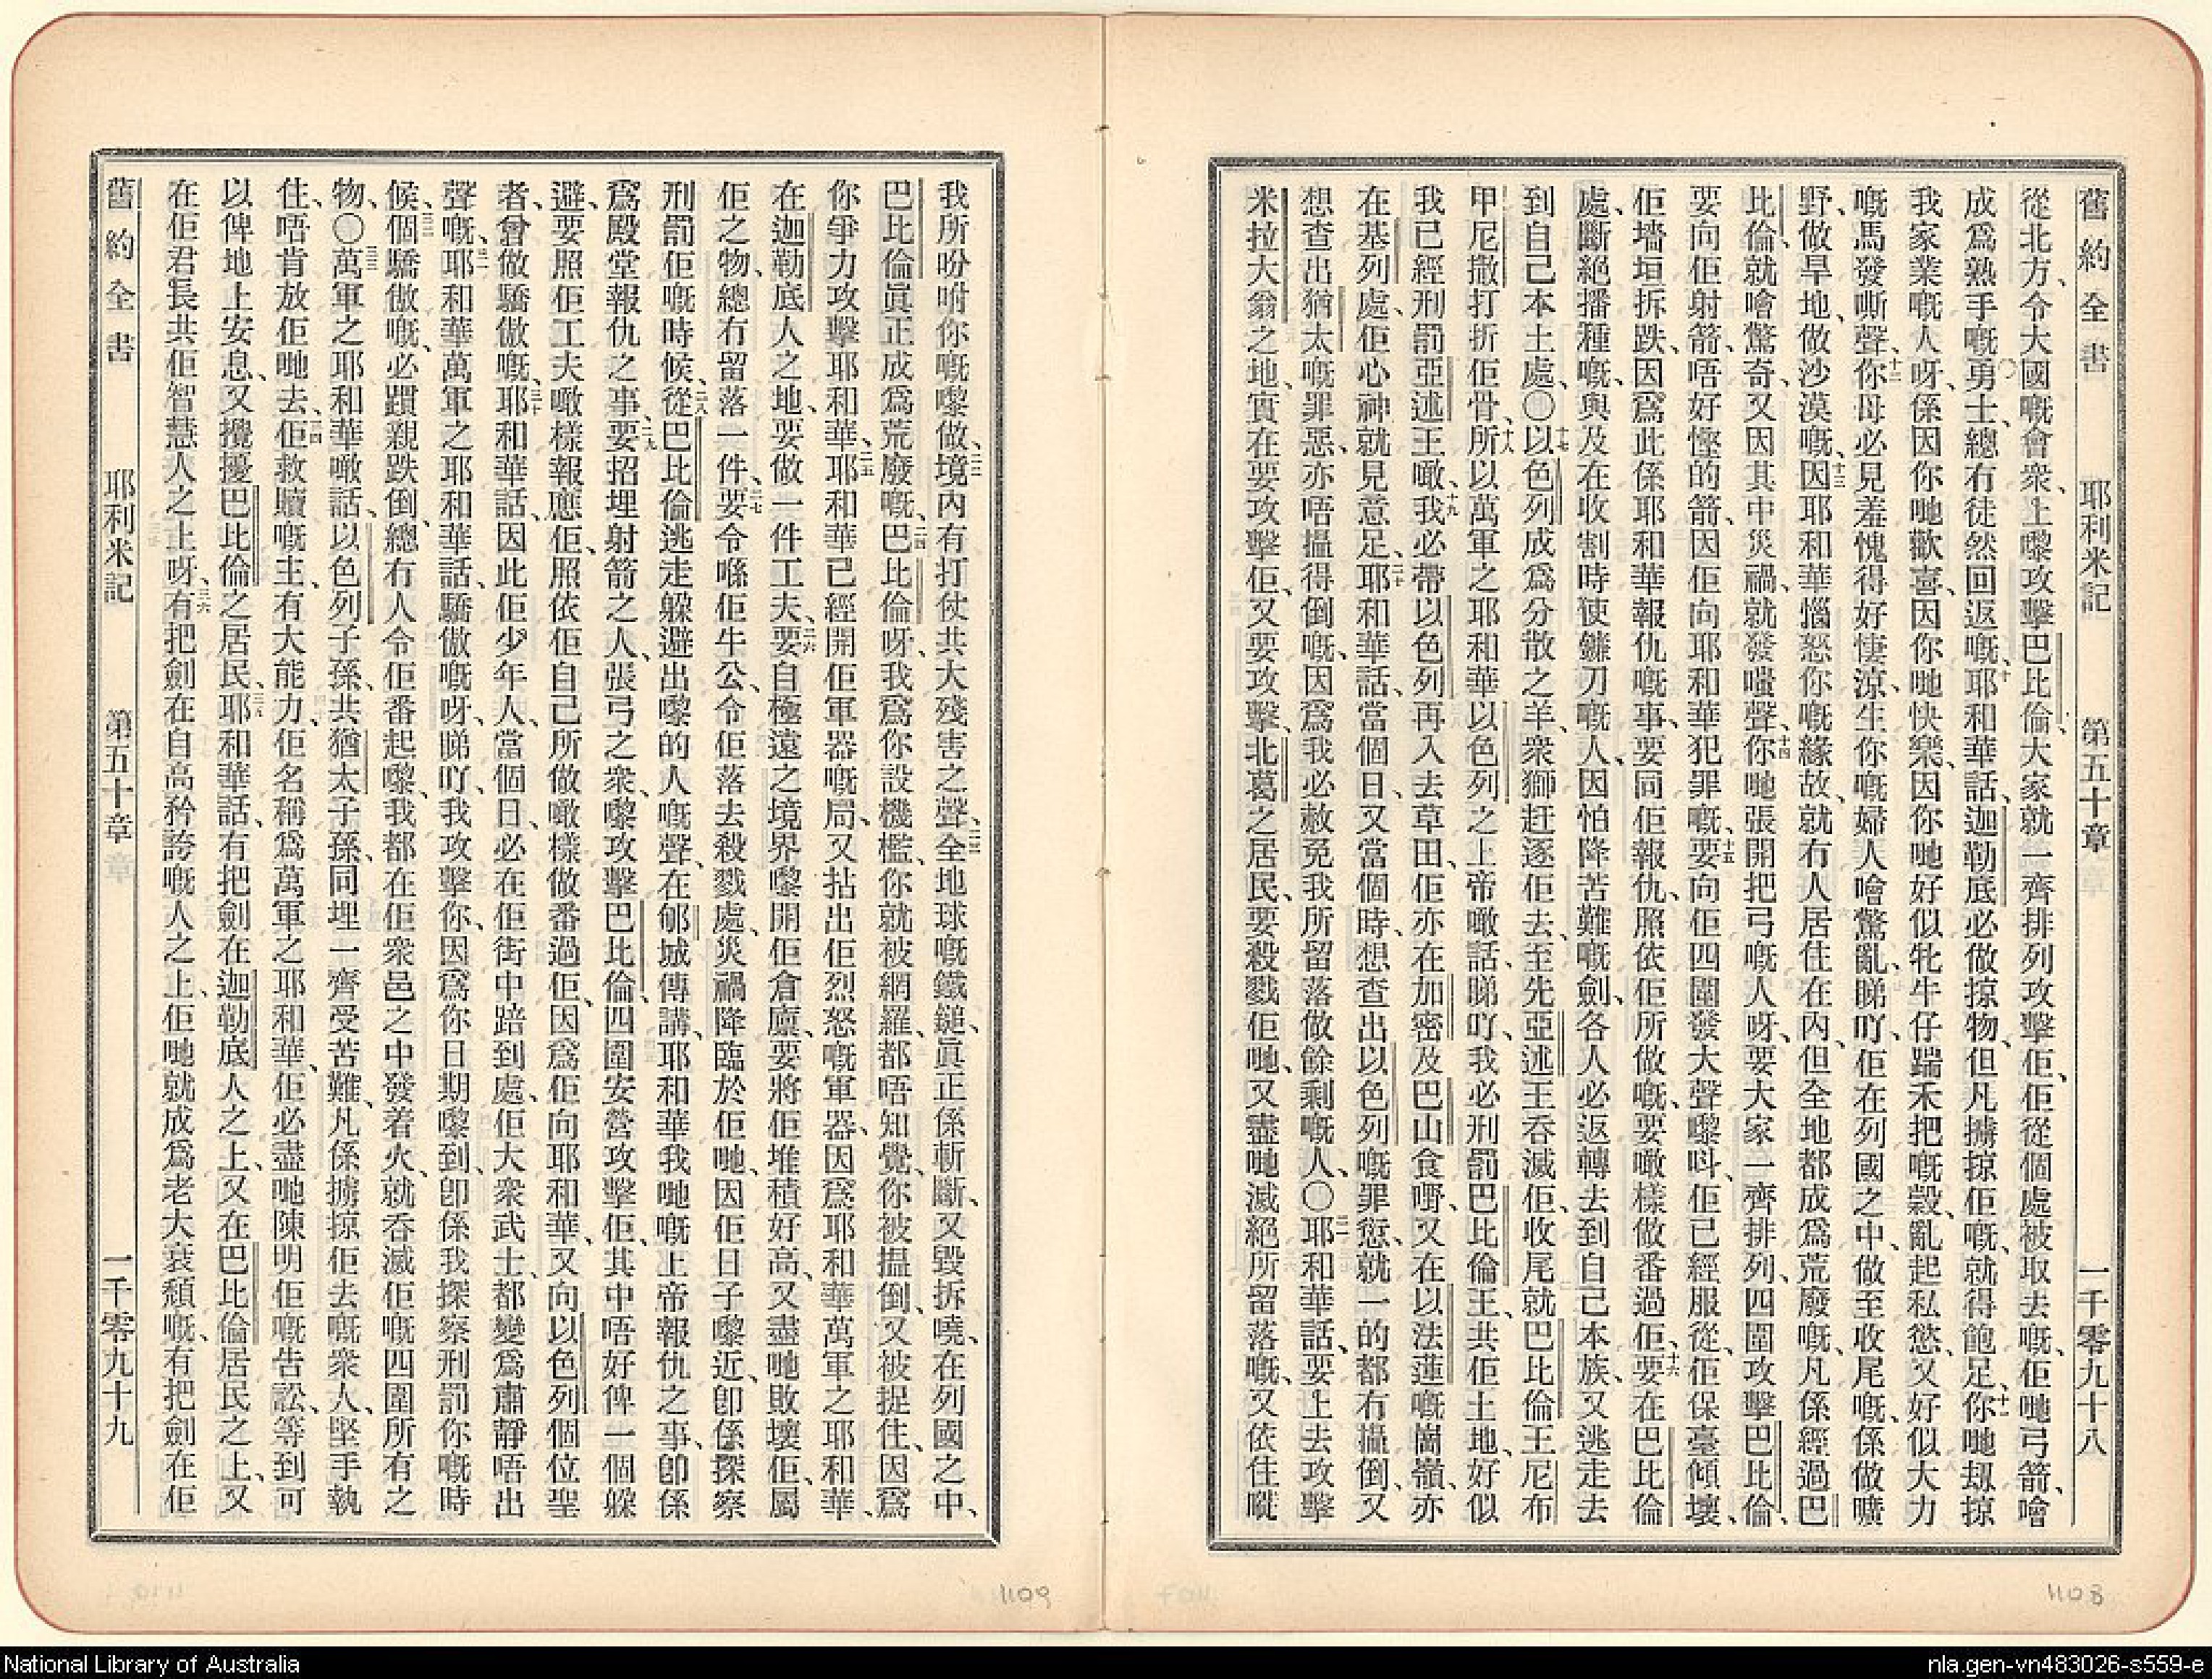 舊約全書 耶利米記 第五十章 一千零九十八
從北方、令大國嘅會衆、上嚟攻擊巴比倫、大家就一齊排列攻擊佢、佢從個處被取去嘅、佢哋弓箭噲
成爲熟手嘅勇士、總冇徒然回返嘅、十耶和華話、迦勒底必做掠物、但凡擄掠佢嘅、就得飽足、十一你哋刼掠
我家業嘅人呀、係因你哋歡喜、因你哋快樂、因你哋好似牝牛仔踹禾把嘅穀、亂起私慾、又好似大力
嘅馬發嘶聲、十二你母必見羞愧得好悽涼、生你嘅婦人噲驚亂、睇吓、佢在列國之中、做至收尾嘅、係做曠
野、做旱地、做沙漠嘅、十三因耶和華惱怒你嘅緣故、就冇人居住在內、但全地都成爲荒廢嘅、凡係經過巴
比倫、就噲驚奇、又因其中災禍、就發嗤聲、十四你哋張開把弓嘅人呀、要大家一齊排列、四圍攻擊巴比倫、
要向佢射箭、唔好慳的箭、因佢向耶和華犯罪嘅、十五要向佢四圍發大聲嚟呌、佢已經服從、佢保臺傾壞、
佢墻垣拆跌、因爲此係耶和華報仇嘅事、要同佢報仇、照依佢所做嘅、要噉樣做番過佢、十六要在巴比倫
處、斷絕播種嘅、與及在收割時使鐮刀嘅人、因怕降苦難嘅劍、各人必返轉去到自己本族、又逃走去
到自己本土處、〇十七以色列成爲分散之羊、衆獅赶逐佢去、至先亞述王吞滅佢、收尾就巴比倫王尼布
甲尼撒打折佢骨、十八所以萬軍之耶和華以色列之上帝噉話、睇吓、我必刑罰巴比倫王、共佢土地、好似
我已經刑罰亞述王噉、十九我必帶以色列再入去草田、佢亦在加密及巴山食嘢、又在以法蓮嘅崗嶺、亦
在基列處、佢心神就見意足、二十耶和華話、當個日、又當個時、想查出以色列嘅罪愆、就一的都冇攝倒、又
想查出猶太嘅罪惡、亦唔攝得倒嘅、因爲我必赦免我所留落做餘剩嘅人、〇二一耶和華話、要上去攻擊
米拉大翁之地、實在要攻擊佢、又要攻擊北葛之居民、要殺戮佢哋、又盡哋滅絕所留落嘅、又依住嘅
我所吩咐你嘅嚟做、二二境內有打仗共大殘害之聲、二三全地球嘅鐵鎚、眞正係斬斷、又毀拆曉、在列國之中、
巴比倫眞正成爲荒廢嘅、二四巴比倫呀、我爲你設機檻、你就被網羅、都唔知覺、你被搵倒、又被捉住、因爲
你爭力攻擊耶和華、二五耶和華已經開佢軍器嘅局、又拈出佢烈怒嘅軍器、因爲耶和華萬軍之耶和華、
在迦勒底人之地、要做一件工夫、二六要自極遠之境界嚟開佢倉廩、要將佢堆積好高、又盡哋敗壞佢、屬
佢之物、總冇留落一件、二七要令喺佢牛公、令佢落去殺戮處、災禍降臨於佢哋、因佢日子嚟近、卽係探察
刑罰佢嘅時候、二八從巴比倫逃走躱避出嚟的人嘅聲、在郇城傳講、耶和華我哋嘅上帝報仇之事、卽係
爲殿堂報仇之事、二九要招埋射箭之人、張弓之衆、嚟攻擊巴比倫、四圍安營攻擊佢、其中唔好俾一個躱
避、要照佢工夫噉樣報應佢、照依佢自己所做噉樣做番過佢、因爲佢向耶和華、又向以色列個位聖
者、曾做驕傲嘅、三十耶和華話、因此佢少年人、當個日、必在佢街中踣到處、佢大衆武士、都變爲肅靜唔出
聲嘅、三一耶和華萬軍之耶和華話、驕傲嘅呀、睇吓、我攻擊你、因爲你日期嚟到、卽係我探察刑罰你嘅時
候、三二個驕傲嘅、必躓親跌倒、總冇人令佢番起嚟、我都在佢衆邑之中發着火、就吞滅佢嘅四圍所有之
物、〇三三萬軍之耶和華噉話、以色列子孫、共猶太子孫、同埋一齊受苦難、凡係擄掠佢去嘅衆人、堅手執
住、唔肯放佢哋去、三四佢救贖嘅主、有大能力、佢名稱爲萬軍之耶和華、佢必盡哋陳明佢嘅告訟、等到可
以俾地上安息、又攪擾巴比倫之居民、三五耶和華話、有把劍在迦勒底人之上、又在巴比倫居民之上、又
在佢君長共佢智慧人之上呀、三六有把劍在自高矜誇嘅人之上、佢哋就成爲老大衰頹嘅、有把劍在佢
舊約全書 耶利米記 第五十章 一千零九十九
1109
1108
National Library of Australia
nla.gen-vn483026-s559-e